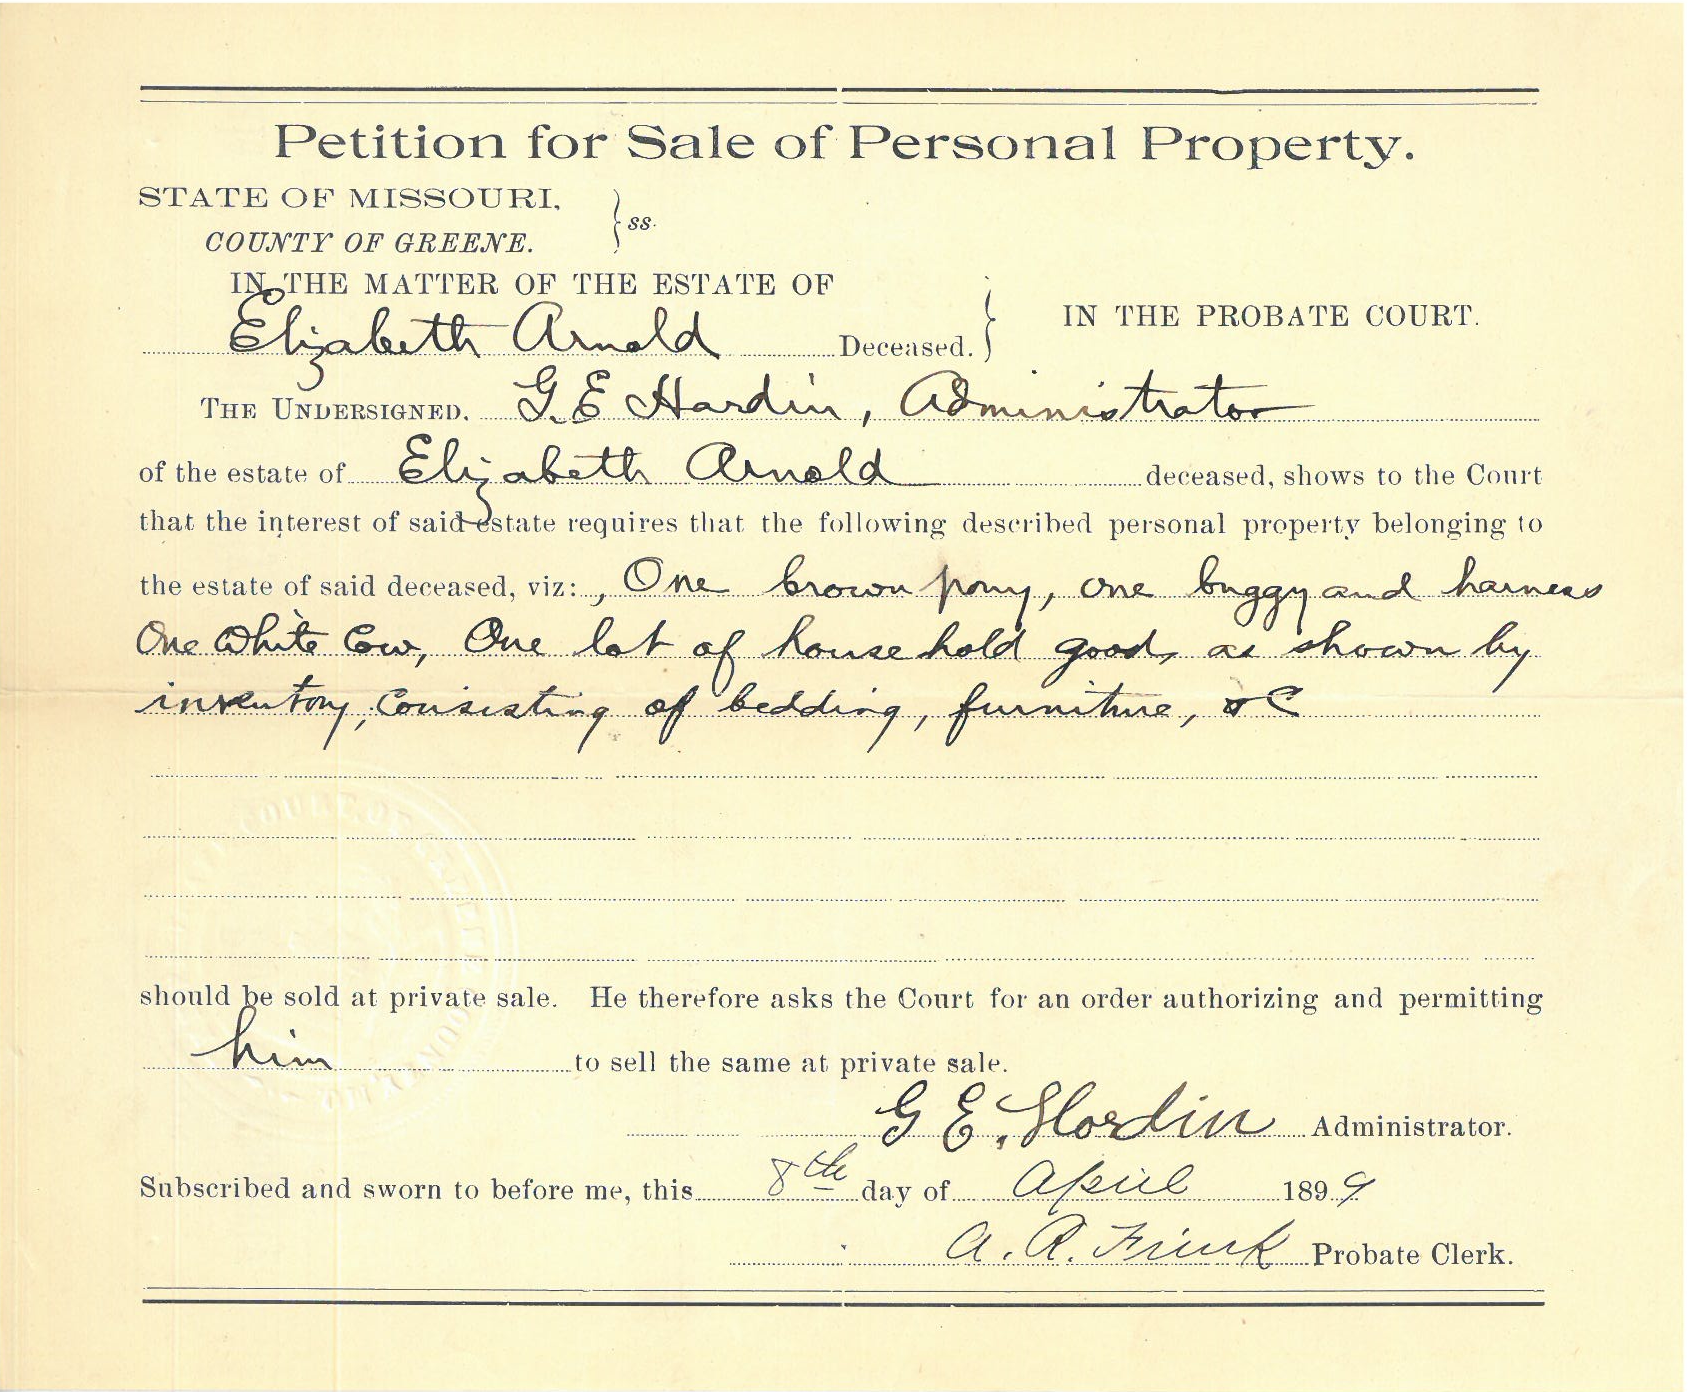 Petition for Sale of Personal Property.
STATE OF MISSOURI,
COUNTY OF GREENE. } ss.
IN THE MATTER OF THE ESTATE OF
Elizabeth Arnold Deceased. } IN THE PROBATE COURT.
THE UNDERSIGNED, G. E Hardin, Administrator
of the estate of Elizabeth Arnold deceased, shows to the Court
that the interest of said estate requires that the following described personal property belonging to
the estate of said deceased, viz: , One brown pony, one buggy and harness
One White Cow, One lot of house hold goods as shown by
inventory, Consisting of bedding, furniture, &C
should be sold at private sale. He therefore asks the Court for an order authorizing and permitting
him to sell the same at private sale.
G E. Hardin Administrator.
Subscribed and sworn to before me, this 8th day of April 1899
A. R. Frink Probate Clerk.